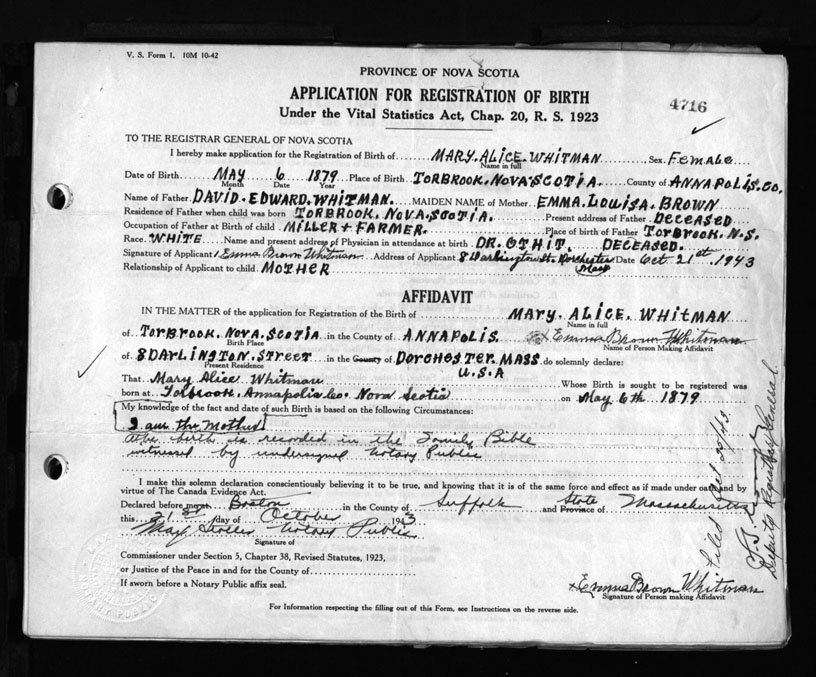 V. S. Form 1. 10M 10-42
PROVINCE OF NOVA SCOTIA
APPLICATION FOR REGISTRATION OF BIRTH
4716
Under the Vital Statistics Act, Chap. 20, R. S. 1923
TO THE REGISTRAR GENERAL OF NOVA SCOTIA
I hereby make application for the Registration of Birth of MARY. ALICE. WHITMAN Sex. Female
Name in full
Date of Birth MAY 6 1879 Place of Birth TORBROOK. NOVA SCOTIA. County of ANNAPOLIS. CO.
Month Date Year
Name of Father DAVID. EDWARD. WHITMAN. MAIDEN NAME of Mother EMMA. LOUISA. BROWN
Residence of Father when child was born TORBROOK. NOVA. SCOTIA. Present address of Father DECEASED
Occupation of Father at Birth of child MILLER + FARMER. Place of birth of Father TORBROOK. N.S.
Race. WHITE Name and present address of Physician in attendance at birth DR. DECEASED.
Signature of Applicant Emma Brown Whitman Address of Applicant 8 Darlington St. Dorchester Date Oct. 21st 1943
Mass
Relationship of Applicant to child MOTHER
AFFIDAVIT
IN THE MATTER of the application for Registration of the Birth of MARY. ALICE. WHITMAN
Name in full
of TORBROOK. NOVA. SCOTIA in the County of ANNAPOLIS. Emma Brown Whitman
Birth Place Name of Person Making Affidavit
of 8 DARLINGTON. STREET in the County of DORCHESTER. MASS do solemnly declare:
Present Residence U.S.A
That Mary Alice Whitman Whose Birth is sought to be registered was
born at Torbrook. Annapolis Co. Nova Scotia on May 6th 1879
My knowledge of the fact and date of such Birth is based on the following Circumstances:
I am the Mother
birth is recorded in the Family Bible
witnessed by undersigned Notary Public
I make this solemn declaration conscientiously believing it to be true, and knowing that it is of the same force and effect as if made under oath and by
virtue of The Canada Evidence Act.
Declared before me at Boston in the County of Suffolk and State Province of Massachusetts
this 21st day of October 1943
Notary Public
Signature of
Commissioner under Section 5, Chapter 38, Revised Statutes, 1923,
or Justice of the Peace in and for the County of
If sworn before a Notary Public affix seal.
x Emma Brown Whitman
Signature of Person making Affidavit
For Information respecting the filling out of this Form, see Instructions on the reverse side.
Filed
Deputy Registrar General